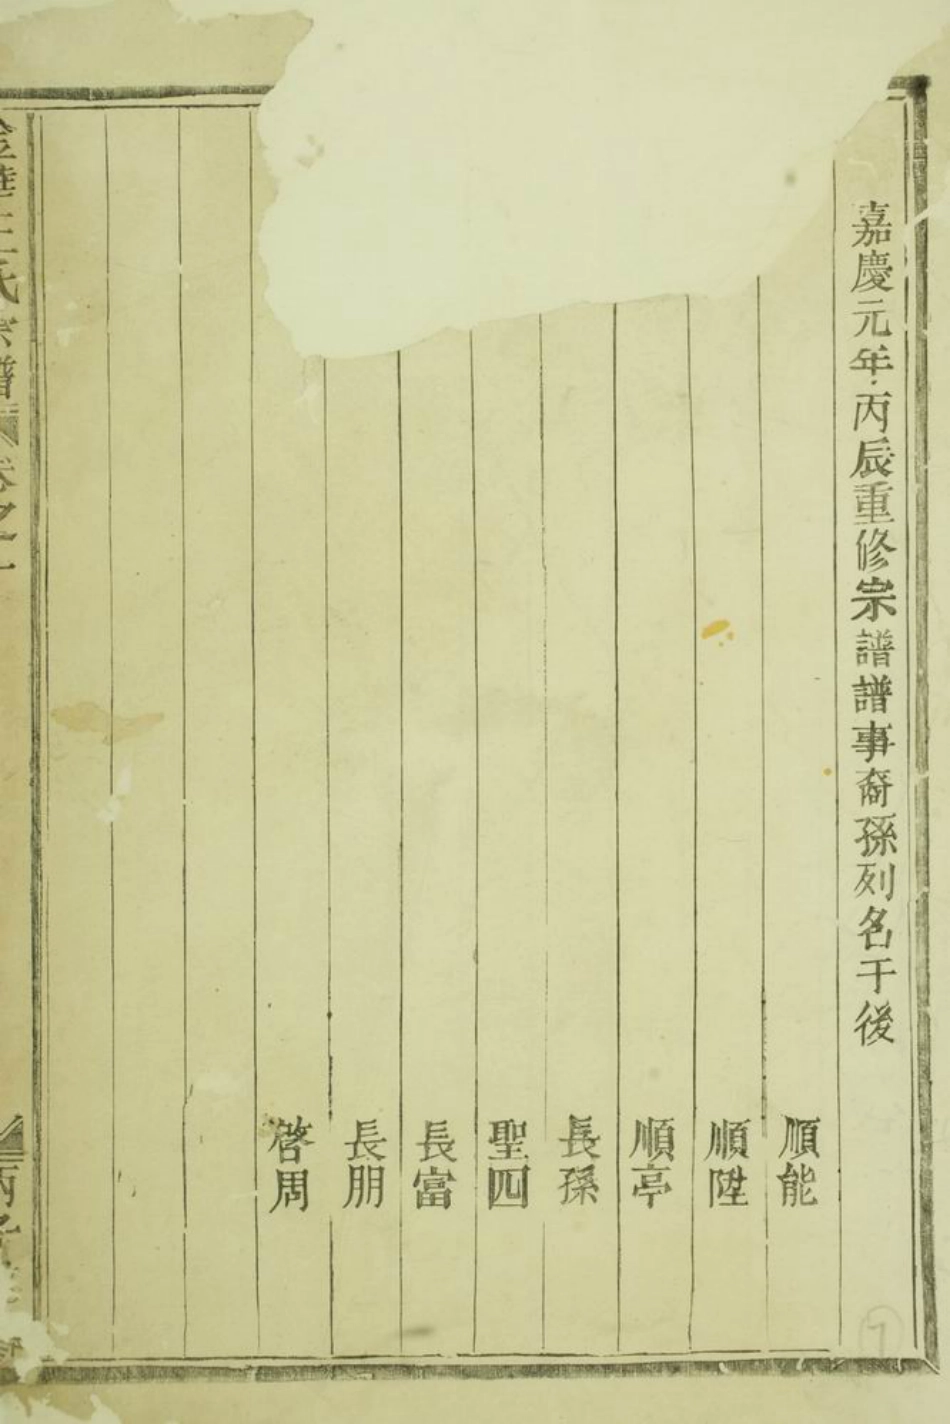 嘉慶元年丙辰重修宗譜譜事裔孫列名于後
順能
順陞
順亭
長孫
聖四
長富
長朋
啓周
王氏宗譜 卷之一